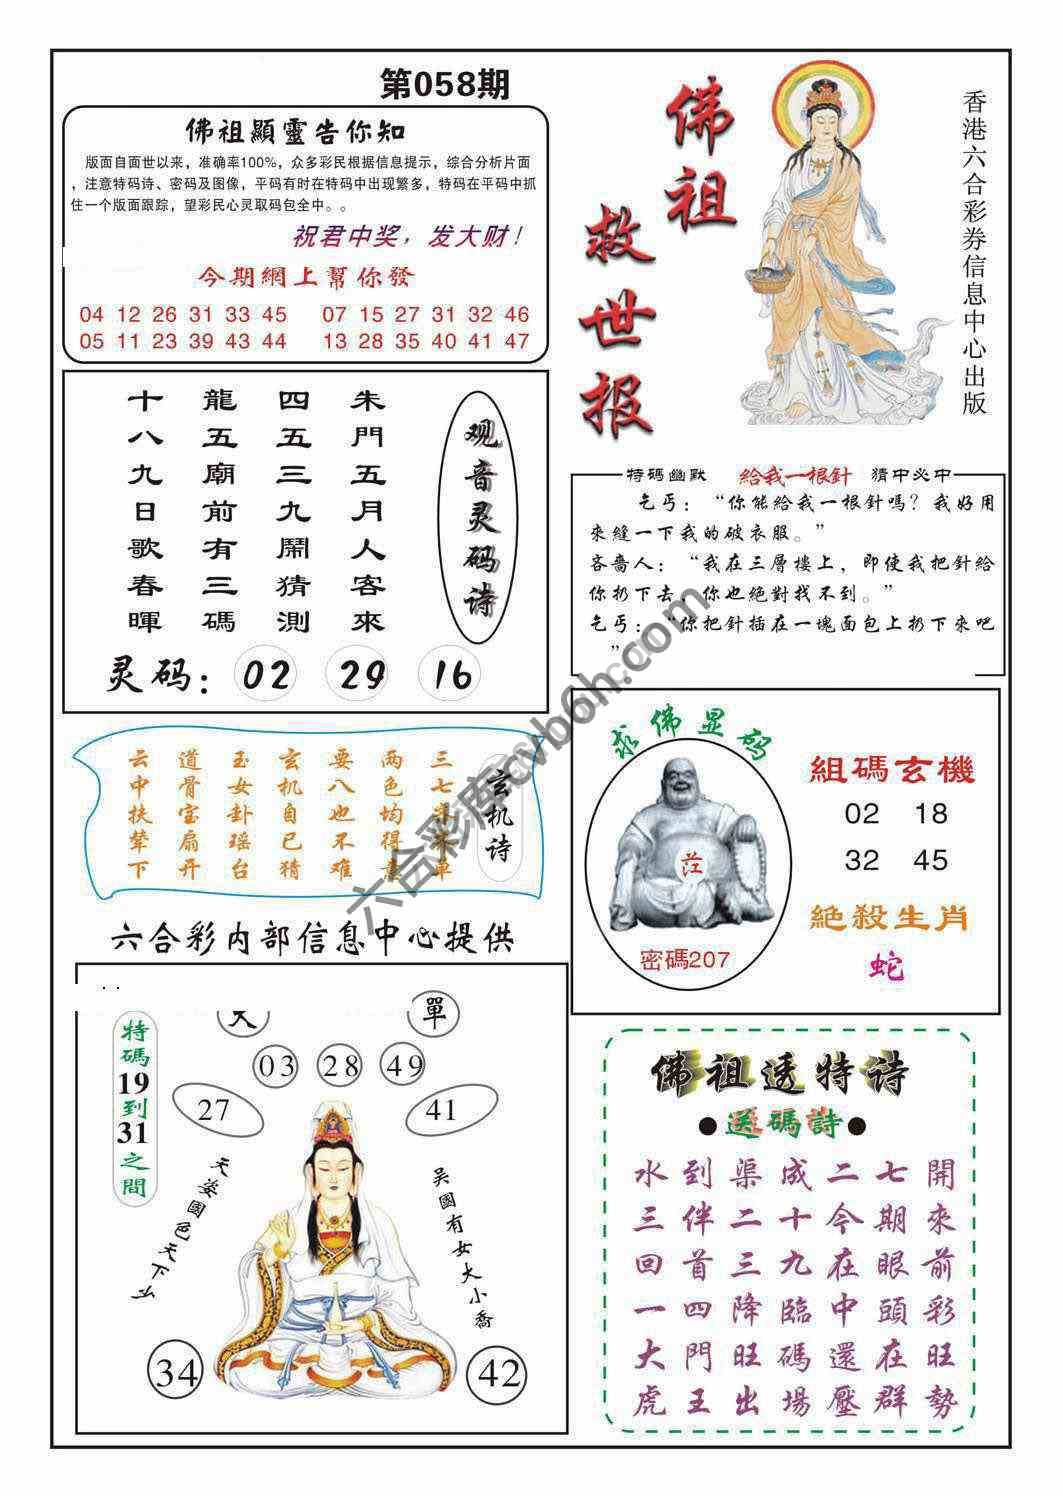 第058期
佛祖顯靈告你知
版面自面世以来，准确率100%，众多彩民根据信息提示，综合分析片面
，注意特码诗、密码及图像，平码有时在特码中出现繁多，特码在平码中抓
住一个版面跟踪，望彩民心灵取码包全中。。
祝君中奖，发大财！
今期網上幫你發
04 12 26 31 33 45 07 15 27 31 32 46
05 11 23 39 43 44 13 28 35 40 41 47
佛祖救世报
香港六合彩券信息中心出版
观音灵码诗
朱門五月人客來
四五三九鬧猜測
龍五廟前有三碼
十八九日歌春暉
灵码：02 29 16
特碼幽默 給我一根針 猜中必中
乞丐：“你能給我一根針嗎？我好用
來縫一下我的破衣服。”
吝嗇人：“我在三層樓上，即使我把針給
你扔下去，你也絕對找不到。”
乞丐：“你把針插在一塊面包上扔下來吧
”
玄机诗
三七
两色均得意
要八也不难
玄机自已猜
玉女卦瑶台
道骨宝扇开
云中扶辇下
求佛显码
密碼207
組碼玄機
02 18
32 45
絕殺生肖
蛇
六合彩内部信息中心提供
單
03 28 49
27 41
特碼19到31之間
天姿國色天下
吴國有女大小喬
34 42
佛祖透特诗
●送碼詩●
水到渠成二七開
三伴二十今期來
回首三九在眼前
一四降臨中頭彩
大門旺碼還在旺
虎王出場壓群勢
六合彩库cvboh.com